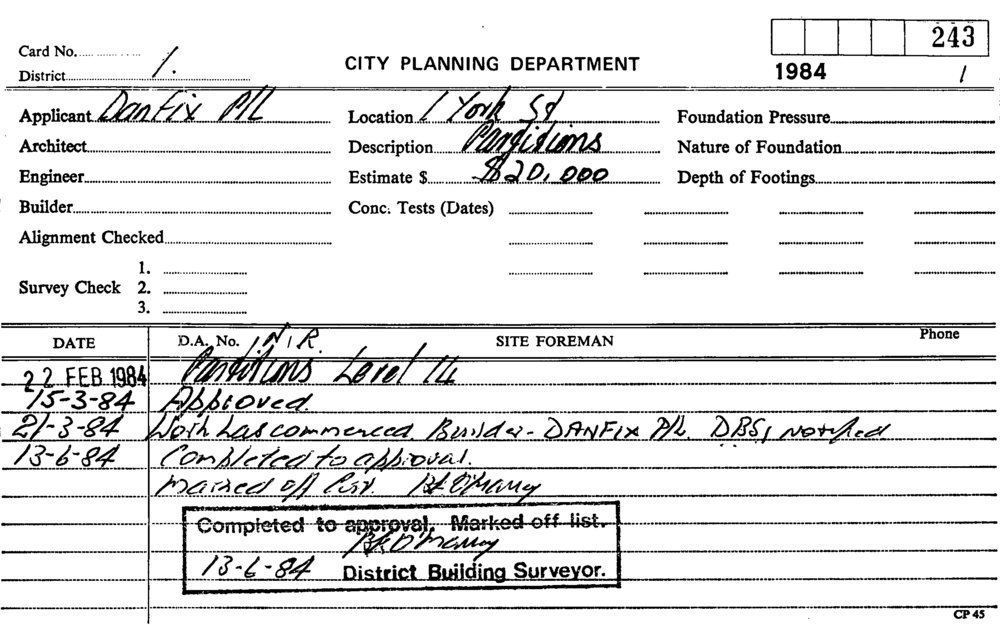 243
Card No.
CITY PLANNING DEPARTMENT
1984 1
District 1.
Applicant DanFix P/L Location 1 York St Foundation Pressure
Architect Description Partitions Nature of Foundation
Engineer Estimate $ $20,000 Depth of Footings
Builder Conc. Tests (Dates)
Alignment Checked
1.
Survey Check 2.
3.
DATE D.A. No. N.R. SITE FOREMAN Phone
22 FEB 1984 Partitions Level 14
15-3-84 Approved.
21-3-84 Work has commenced. Builder - DANFIX P/L. DBS, notified
13-6-84 Completed to approval.
Marked off List.
Completed to approval. Marked off list.
13-6-84 District Building Surveyor.
CP 45